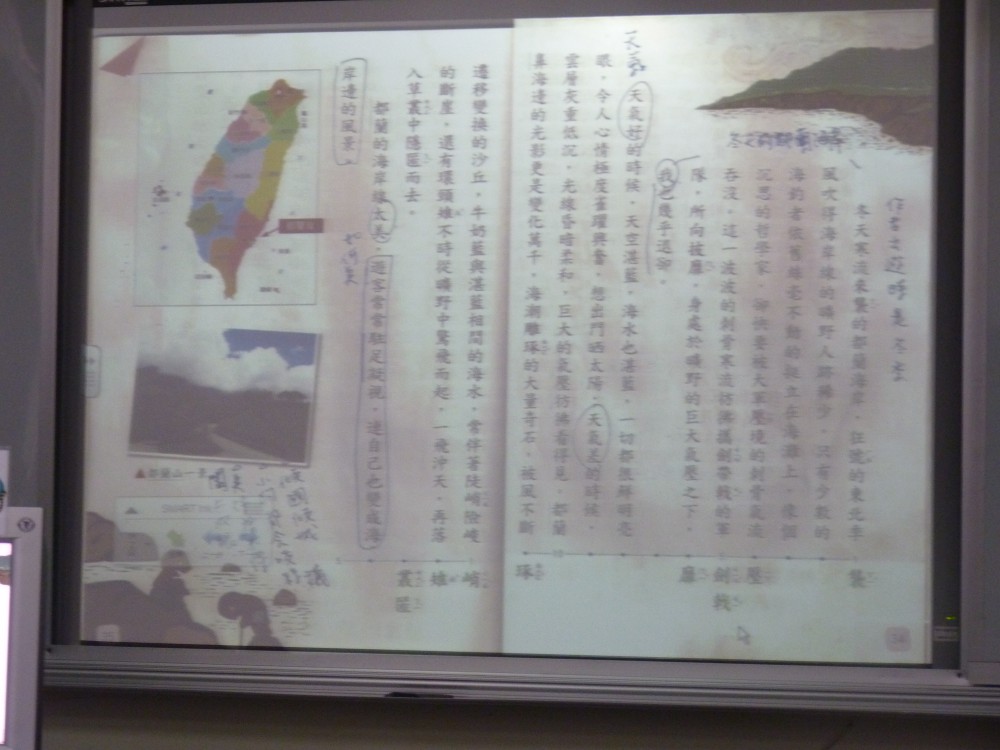 冬天寒波來襲的都蘭海岸,狂號的東北季
風吹得海岸線的曠野人跡稀少,只有少數的
海釣者依舊絲毫不動的挺立在海灘上,像個
沉思的哲學家,卻快要被大軍壓境的刺骨氣流
吞沒。這一波波的刺骨寒流彷彿攜劍帶戟的軍
隊,所向披靡,身處於曠野的巨大氣壓之下,
我也幾乎退卻。
天氣
天氣好的時候,天空湛藍,海水也湛藍,一切都很鮮明亮
眼,令人心情極度雀躍興奮,想出門晒太陽。天氣差的時候,
雲層灰重低沉,光線昏暗柔和,巨大的氣壓彷彿看得見。都蘭
鼻海邊的光影更是變化萬千,海潮雕琢的大量奇石,被風不斷
襲
壓
劍
戟
靡
琢
34
遷移變換的沙丘,牛奶藍與湛藍相間的海水,常伴著陡峭險峻
的斷崖,還有環頸雉不時從曠野中驚飛而起,一飛沖天,再落
入草叢中隱匿而去。
都蘭的海岸線太美,遊客常常駐足凝視,連自己也變成海
岸邊的風景。
峭
雉
叢
匿
都蘭山一景
SMART